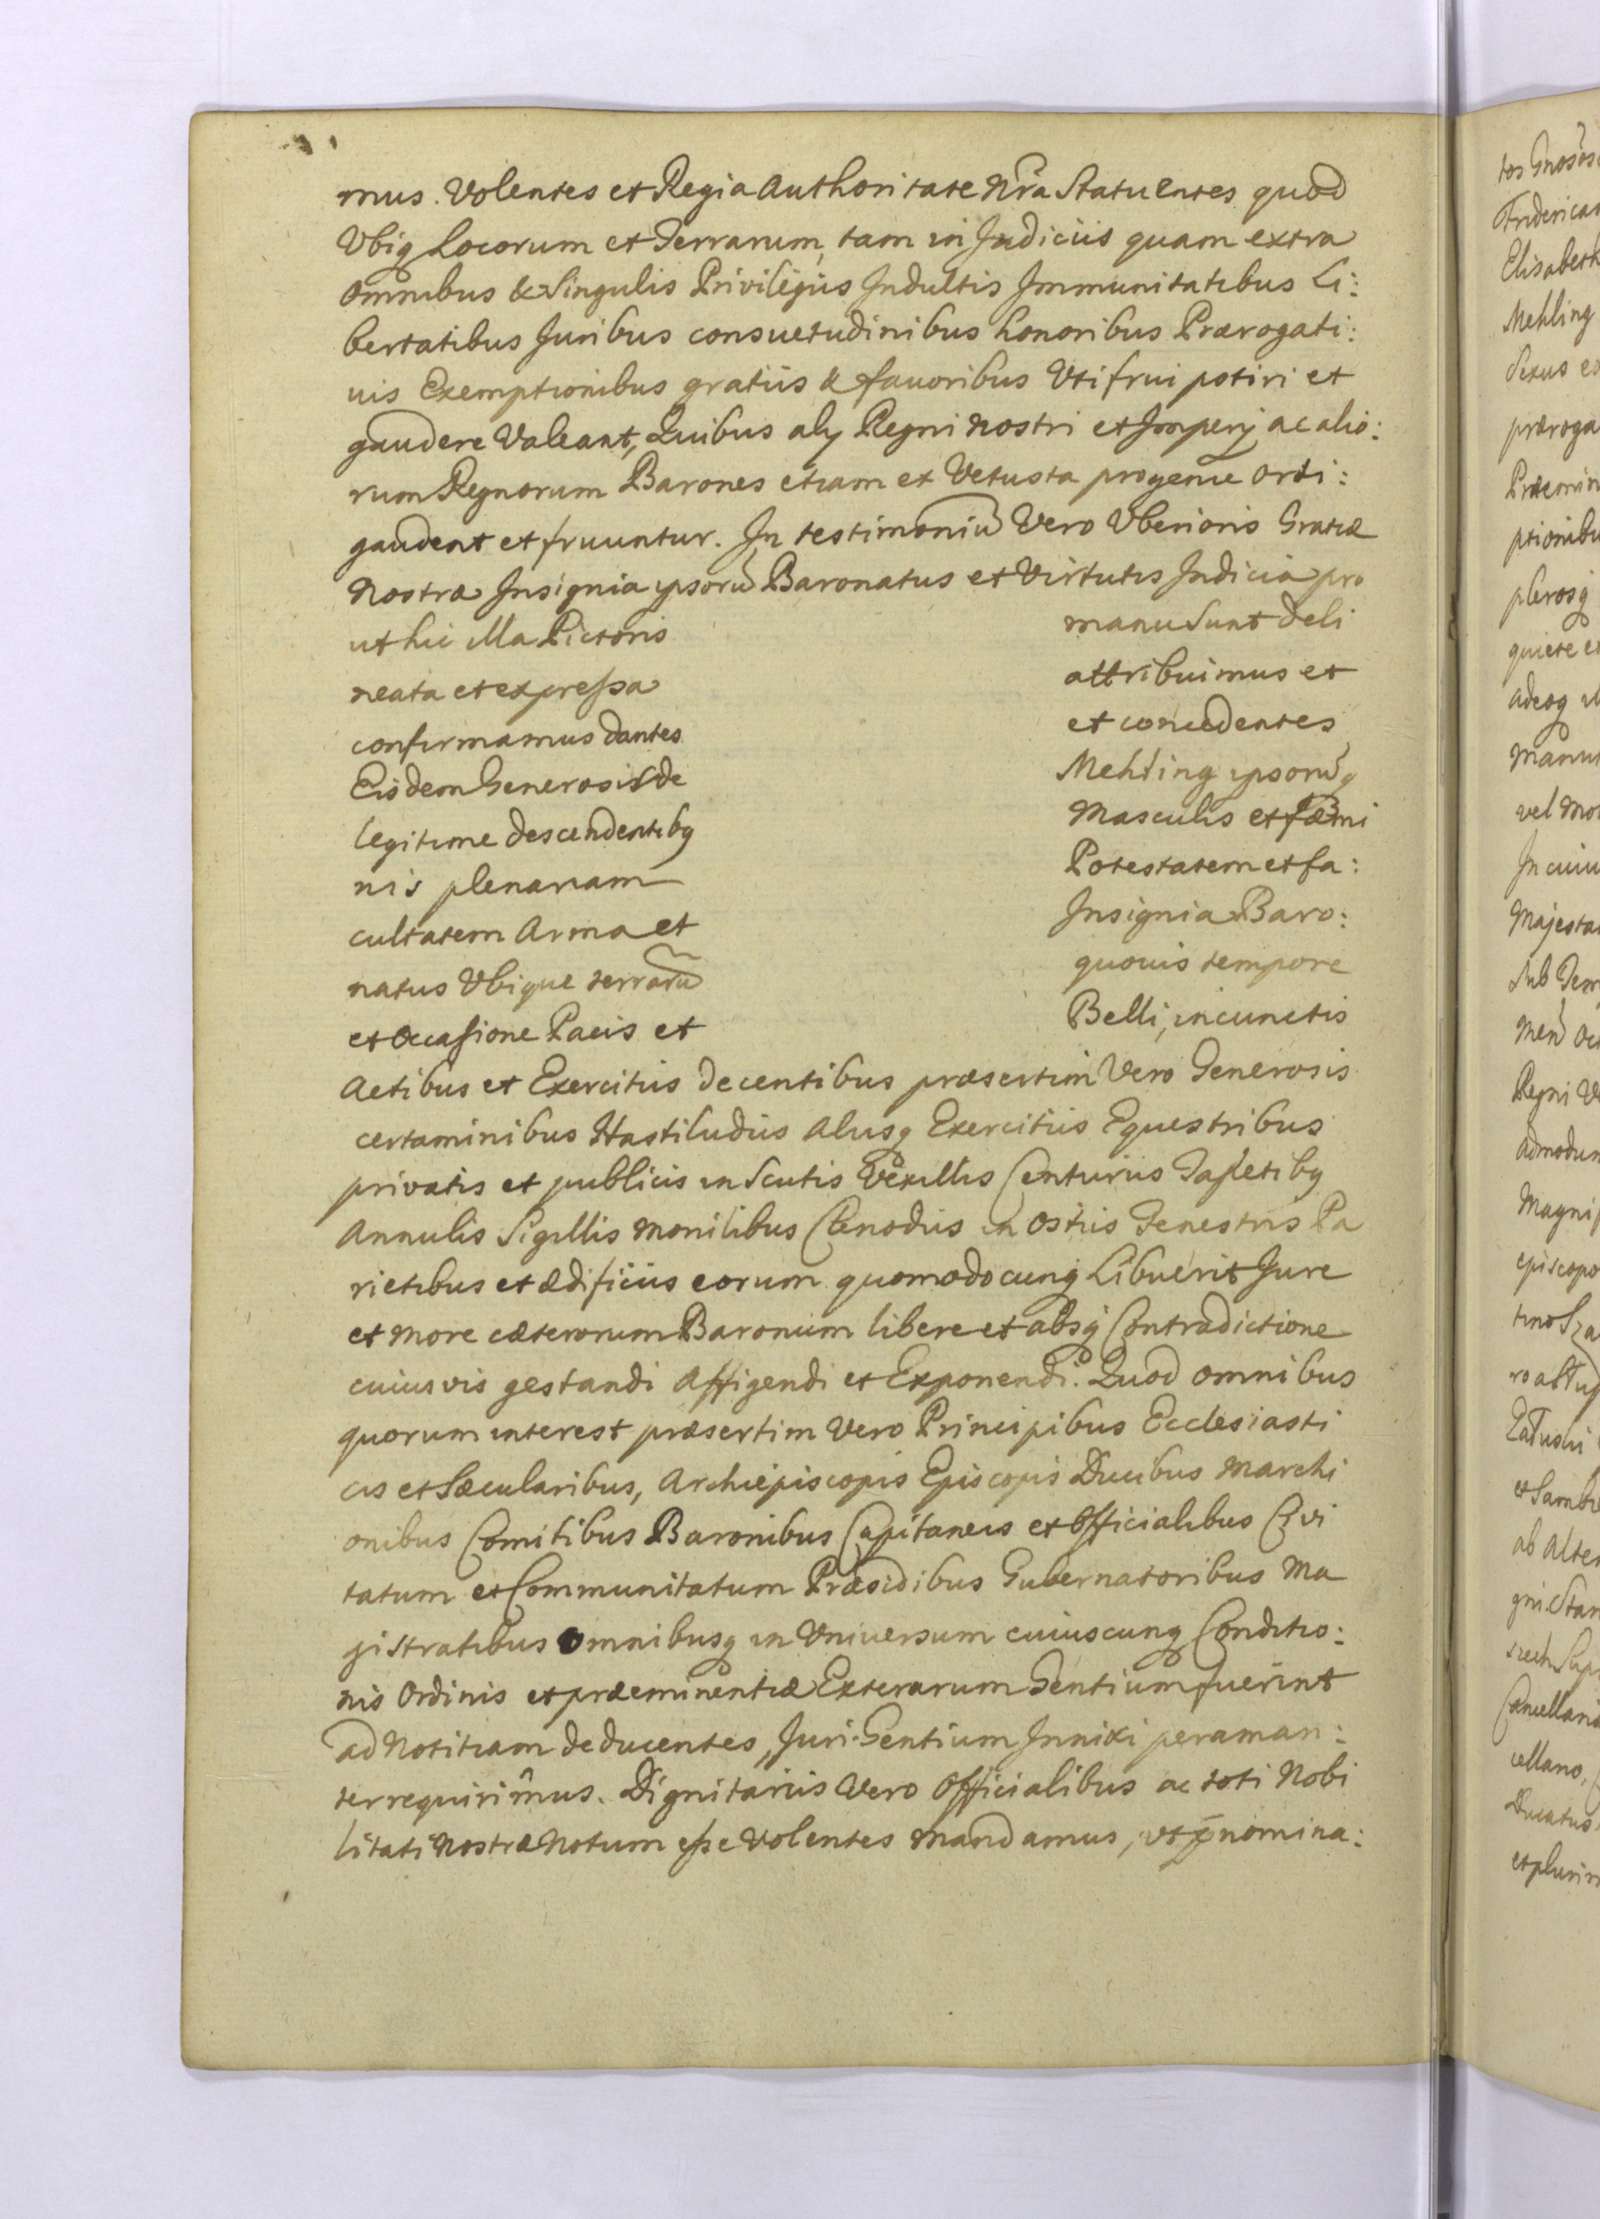 mus. Volentes et Regia Authoritate Nr̃a Statuentes quod
Vbiq Locorum et Terrarum, tam in Judiciis quam extra
omnibus & Singulis Privilegiis Indultis Immunitatibus Li:
bertatibus Juribus consuetudinibus honoribus Prærogati:
uis Exemptionibus gratiis & fauoribus Vti frui potiri et
gaudere Valeant, Quibus aly Regni nostri et Impery ac alio:
rum Regnorum Barones etiam ex Vetusta progenie orti:
gaudent et fruuntur. In testimoniũ Vero Vberioris Gratiæ
Nostræ Insignia ipsorũ Baronatus et Virtutis Indicia pro
ut hic illa Pictoris manu Sunt deli
neata et expressa attribuimus et
confirmamus dantes et concedentes
Eisdem Generosis de Mehling ipsorũq
legitime descendentibq Masculis et fœmi
nis plenariam Potestatem et fa:
cultatem Arma et Insignia Baro:
natus Vbique terrarũ quouis tempore
et occasione Pacis et Belli, in cunctis
Actibus et Exercitiis decentibus præsertim Vero Generosis
certaminibus Hastiludiis Aliisq Exercitiis Equestribus
privatis et publicis in Scutis Vexillis Centuriis Tapetibq
Annulis Sigillis Monilibus Clenodiis in Ostiis Fenestris Pa
rietibus et ædificiis eorum quomodocunq Libuerit Jure
et More cæterorum Baronum libere et absq Contradictione
cuiusvis gestandi Affigendi et Exponendi. Quod omnibus
quorum interest præsertim Vero Principibus Ecclesiasti
cis et Sæcularibus, Archiepiscopis Episcopis Ducibus Marchi
onibus Comitibus Baronibus Capitaneis et Officialibus Civi
tatum et Communitatum Præsidibus Gubernatoribus Ma
gistratibus Omnibusq in Vniuersum cuiuscunq Conditio:
nis Ordinis et præeminentiæ Exterarum Gentium fuerint
ad Notitiam deducentes, Juri Gentium Innixi peraman:
ter requirimus. Dignitariis Vero Officialibus ac toti Nobi
litati Nostræ Notum esse Volentes Mandamus, vt p̃nomina:
tos Gnosos
Fridericum
Elisabeth
Mehling
Sexus
præroga
Præemin
ptionibu
plerosq
quiete
adeoq
Manu
vel
In cuiu
Majesta
Sub
Regni
admodum
Magni
episcopo
ab Alter
Ducatus
et plurim